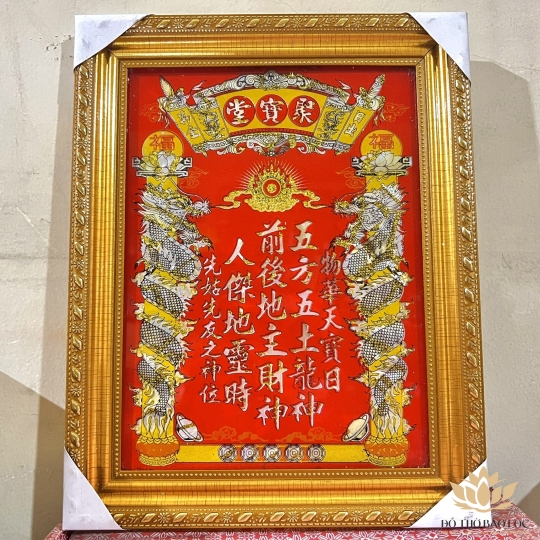 聚寶堂
福
福
物華天寶日
五方五土龍神
前後地主財神
人傑地靈時
先姑先友之神位
ĐỒ THỜ BẢO LỘC